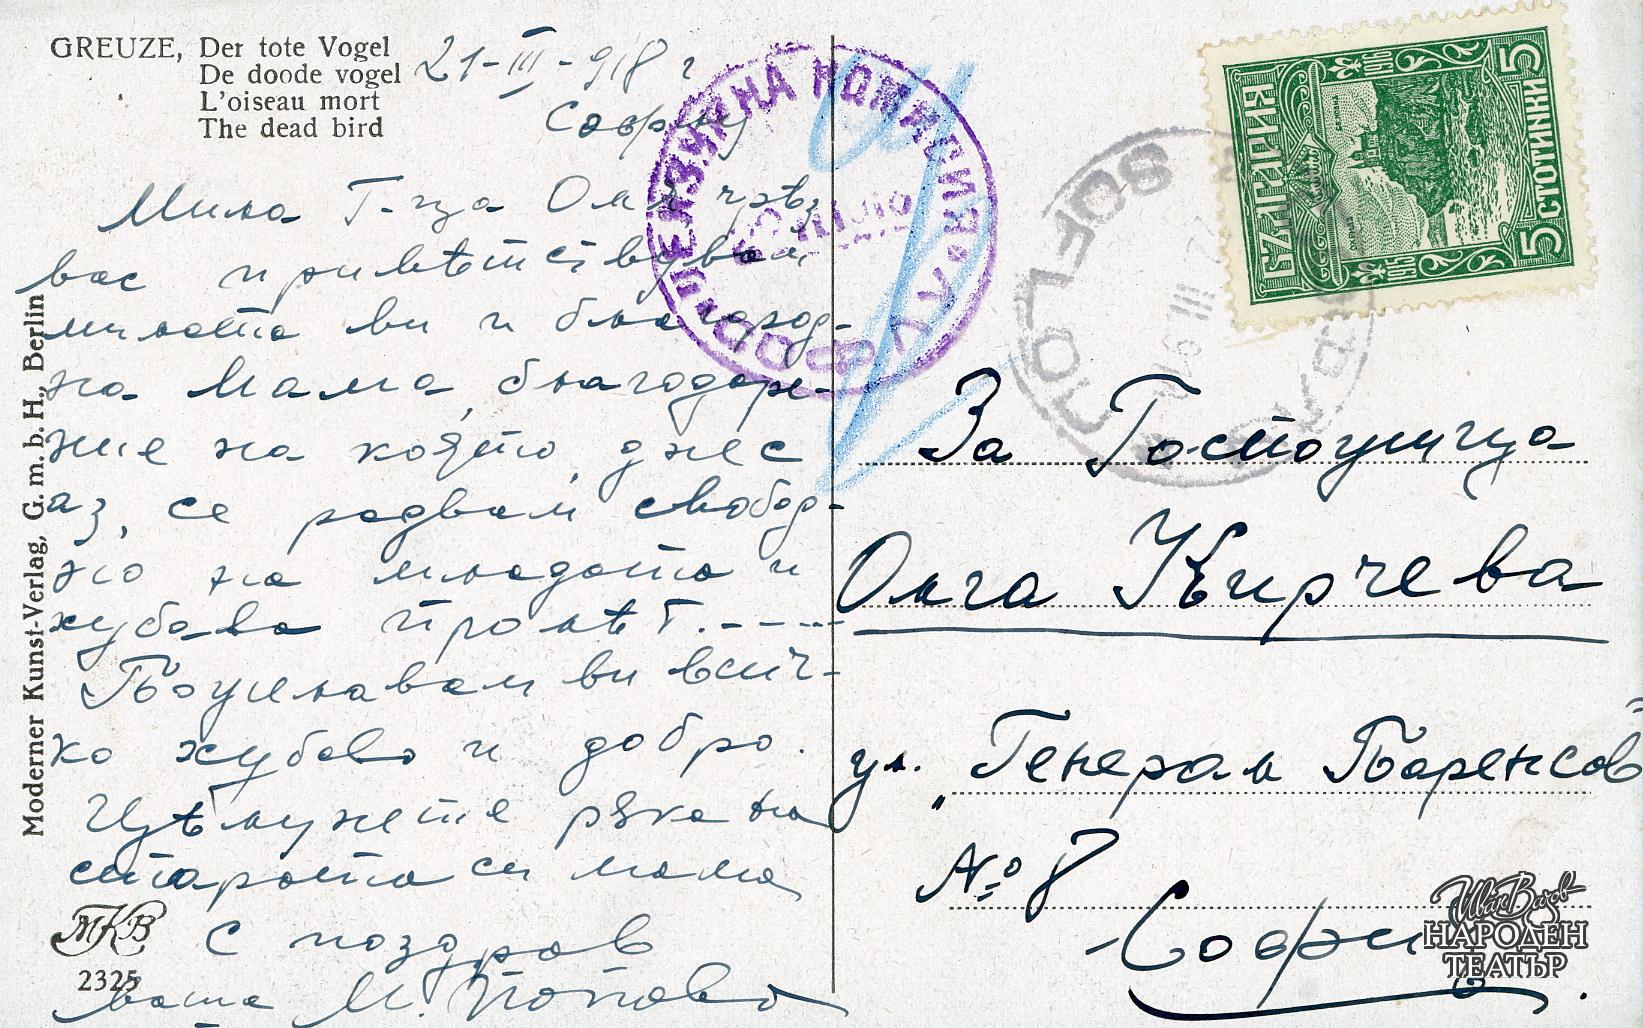 GREUZE, Der tote Vogel
De doode vogel
L'oiseau mort
The dead bird
21-III-918 г
София
Мила Г-ца Олг чрѣз
вас привѣтствувам
милата ви и благород-
на мама, благодаре-
ние на която, днес
аз, се радвам свобод-
но на младата и
хубава пролѣт.-----
Пожелавам ви всич-
ко хубаво и добро.
Цѣлунете рѫка на
старата си мама
С поздрав
Ваша М. Попова
Moderner Kunst-Verlag, G.m.b.H., Berlin
МКВ
2325
ЦЕНЗУРНА КОМИСИЯ
СОФИЯ
SOF
БЪЛГАРИЯ
5 СТОТИНКИ 5
За Госпожица
Олга Кирчева
ул. "Генерал Паренсов"
№ 8
София.
Иван Вазов
НАРОДЕН
ТЕАТЪР